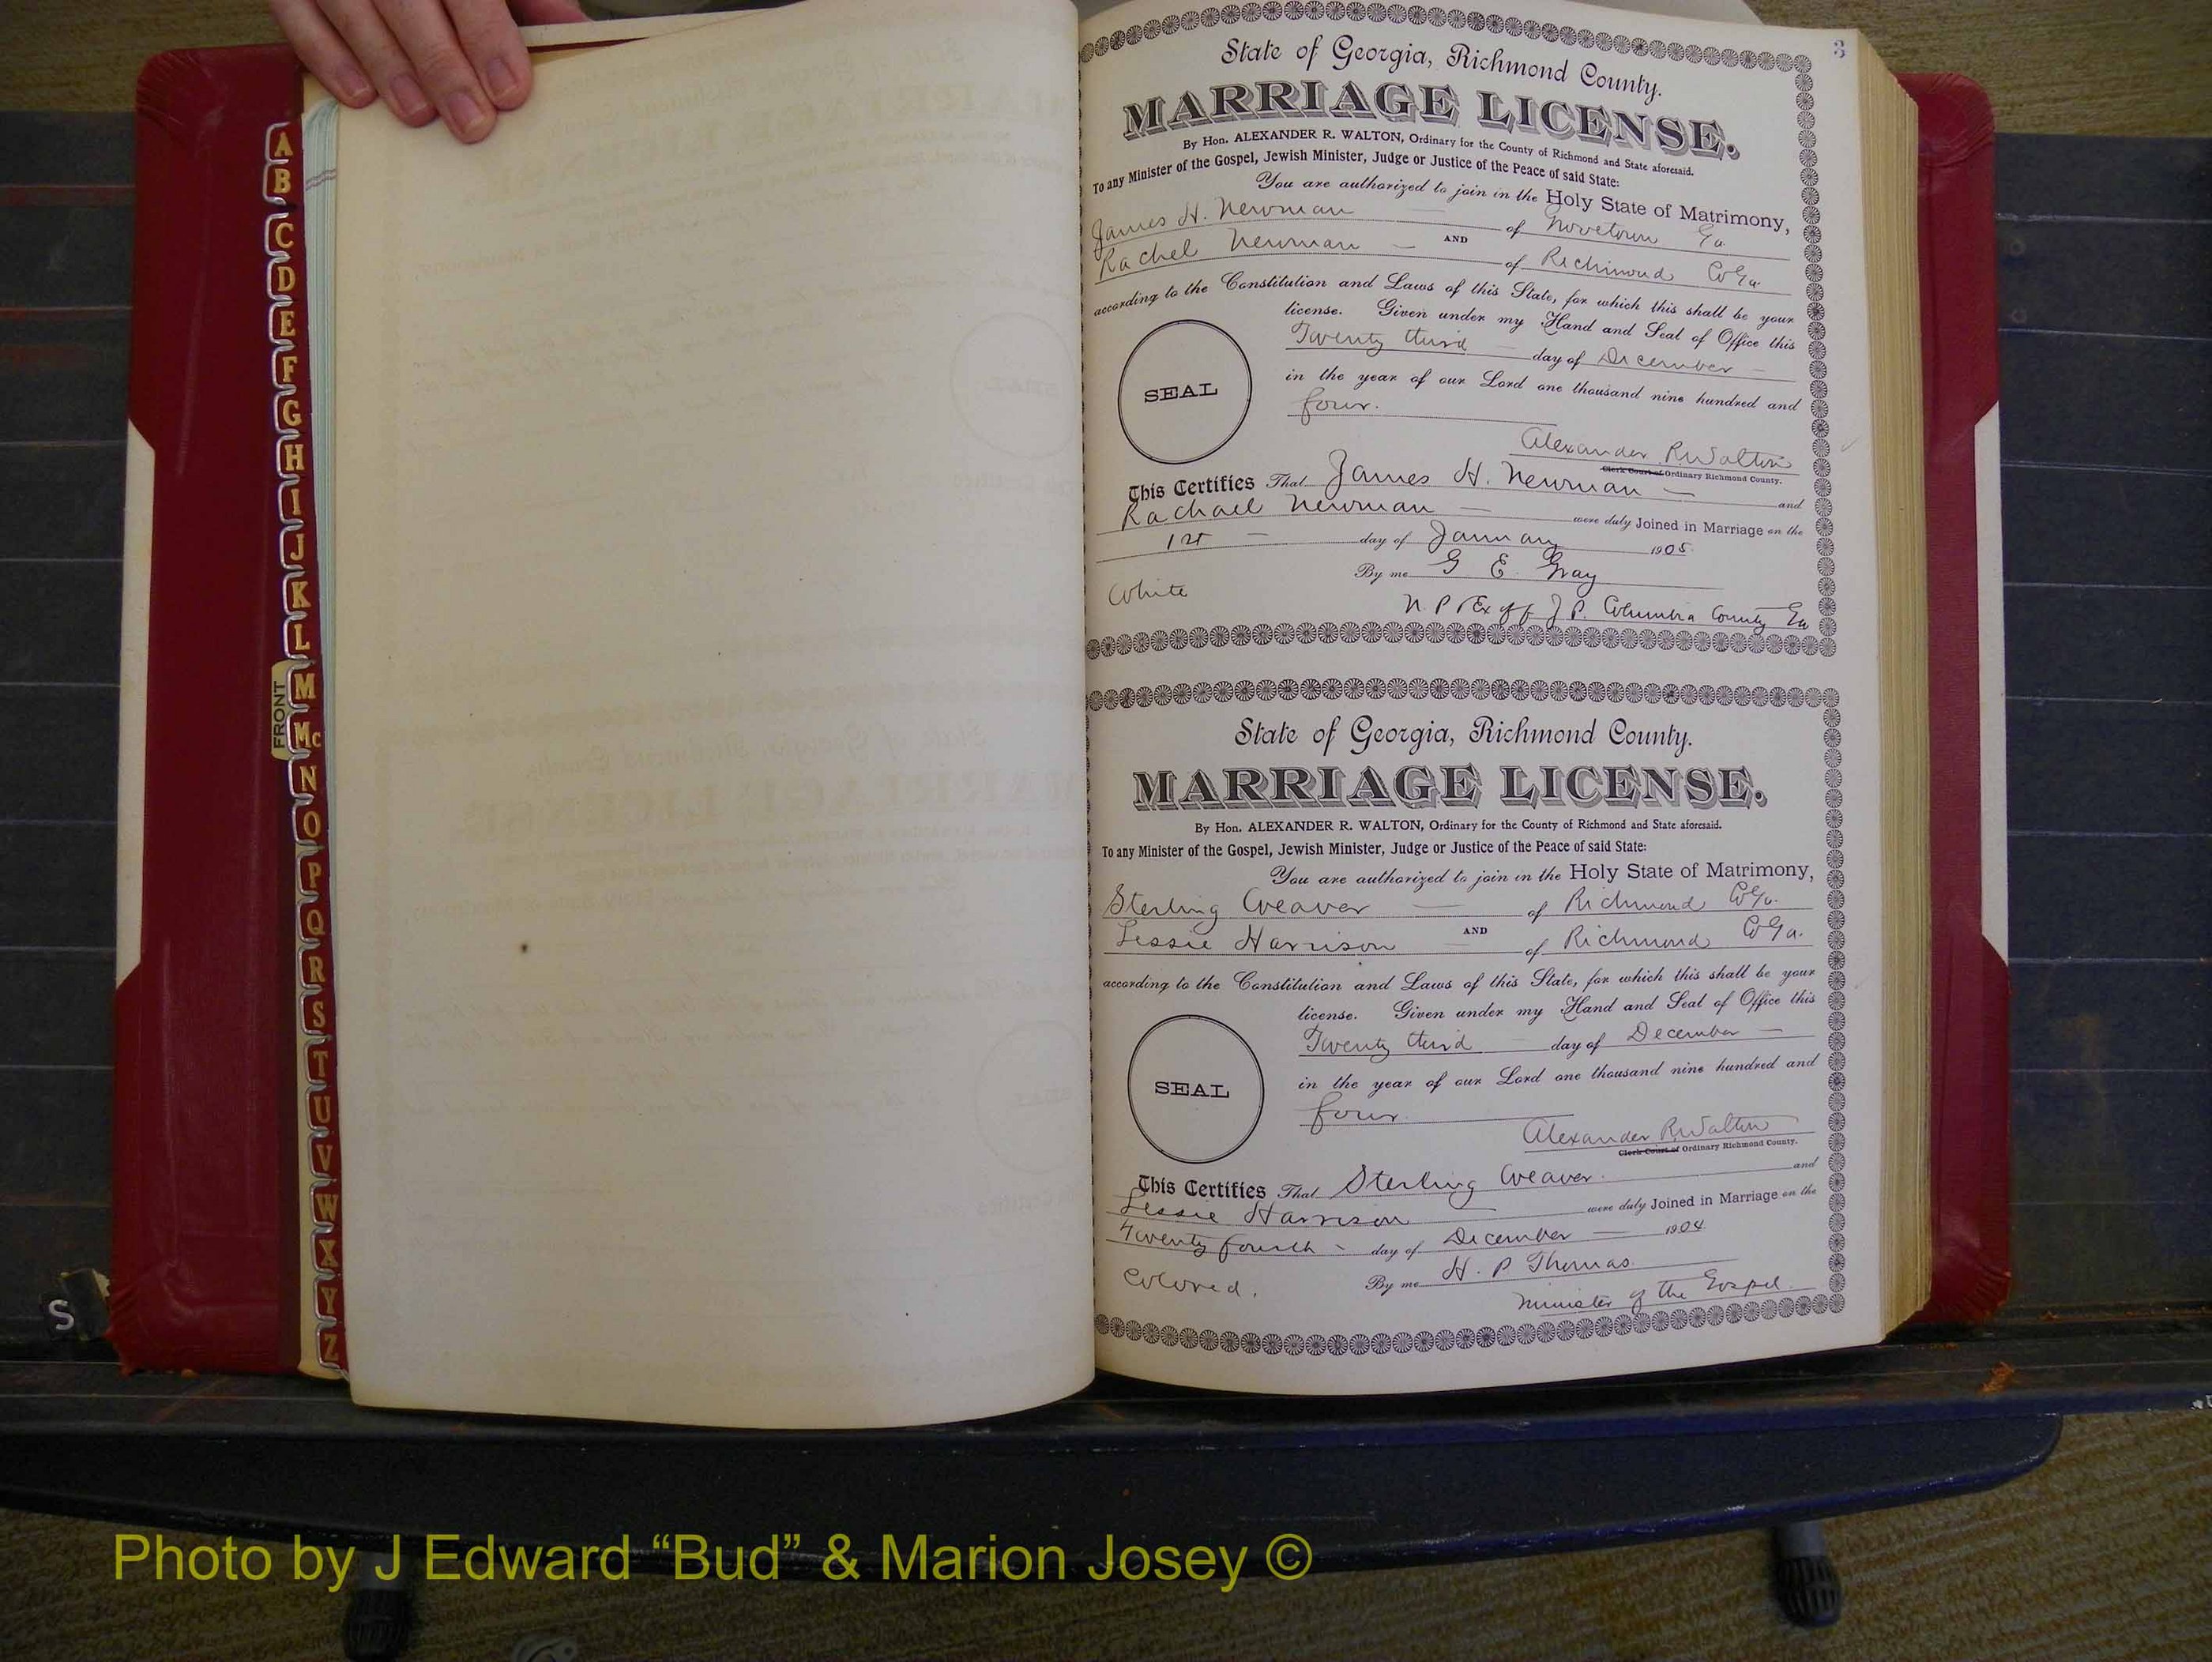 A
B
C
D
E
F
G
H
I
J
K
L
M
FRONT
Mc
N
O
P
Q
R
S
T
U
V
W
X
Y
Z
S
3
State of Georgia, Richmond County.
MARRIAGE LICENSE.
By Hon. ALEXANDER R. WALTON, Ordinary for the County of Richmond and State aforesaid.
To any Minister of the Gospel, Jewish Minister, Judge or Justice of the Peace of said State:
You are authorized to join in the Holy State of Matrimony,
James H. Newman of Grovetown Ga
AND
Rachel Newman of Richmond Co Ga
according to the Constitution and Laws of this State, for which this shall be your
license. Given under my Hand and Seal of Office this
Twenty third day of December
in the year of our Lord one thousand nine hundred and
four.
SEAL
Alexander R. Walton
Clerk Court of Ordinary Richmond County.
This Certifies That James H. Newman and
Rachael Newman were duly Joined in Marriage on the
1st day of January 1905
By me G E. Gray
White
N. P & Ex off J P. Columbia County Ga
State of Georgia, Richmond County.
MARRIAGE LICENSE.
By Hon. ALEXANDER R. WALTON, Ordinary for the County of Richmond and State aforesaid.
To any Minister of the Gospel, Jewish Minister, Judge or Justice of the Peace of said State:
You are authorized to join in the Holy State of Matrimony,
Sterling Weaver of Richmond Co Ga.
AND
Lessie Harrison of Richmond Co Ga.
according to the Constitution and Laws of this State, for which this shall be your
license. Given under my Hand and Seal of Office this
Twenty third day of December
in the year of our Lord one thousand nine hundred and
four.
SEAL
Alexander R. Walton
Clerk Court of Ordinary Richmond County.
This Certifies That Sterling Weaver. and
Lessie Harrison were duly Joined in Marriage on the
Twenty fourth day of December 1904
By me H. P Thomas.
Colored.
Minister of the Gospel.
Photo by J Edward “Bud” & Marion Josey ©